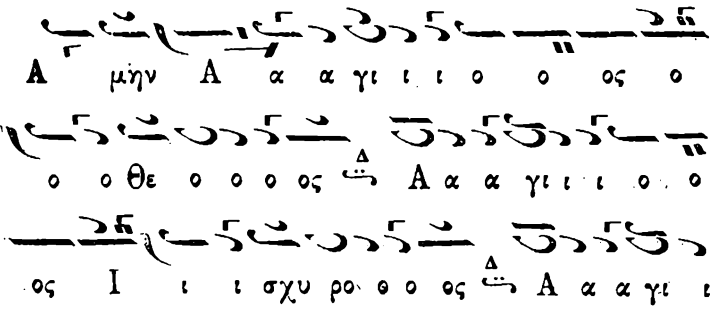 Α μήν Α α α γι ι ι ο ο ος ο
ο ο Θε ο ο ο ος Δ Α α α γι ι ι ο ο
ος Ι ι ι σχυ ρο ο ο ος Δ Α α α γι ι